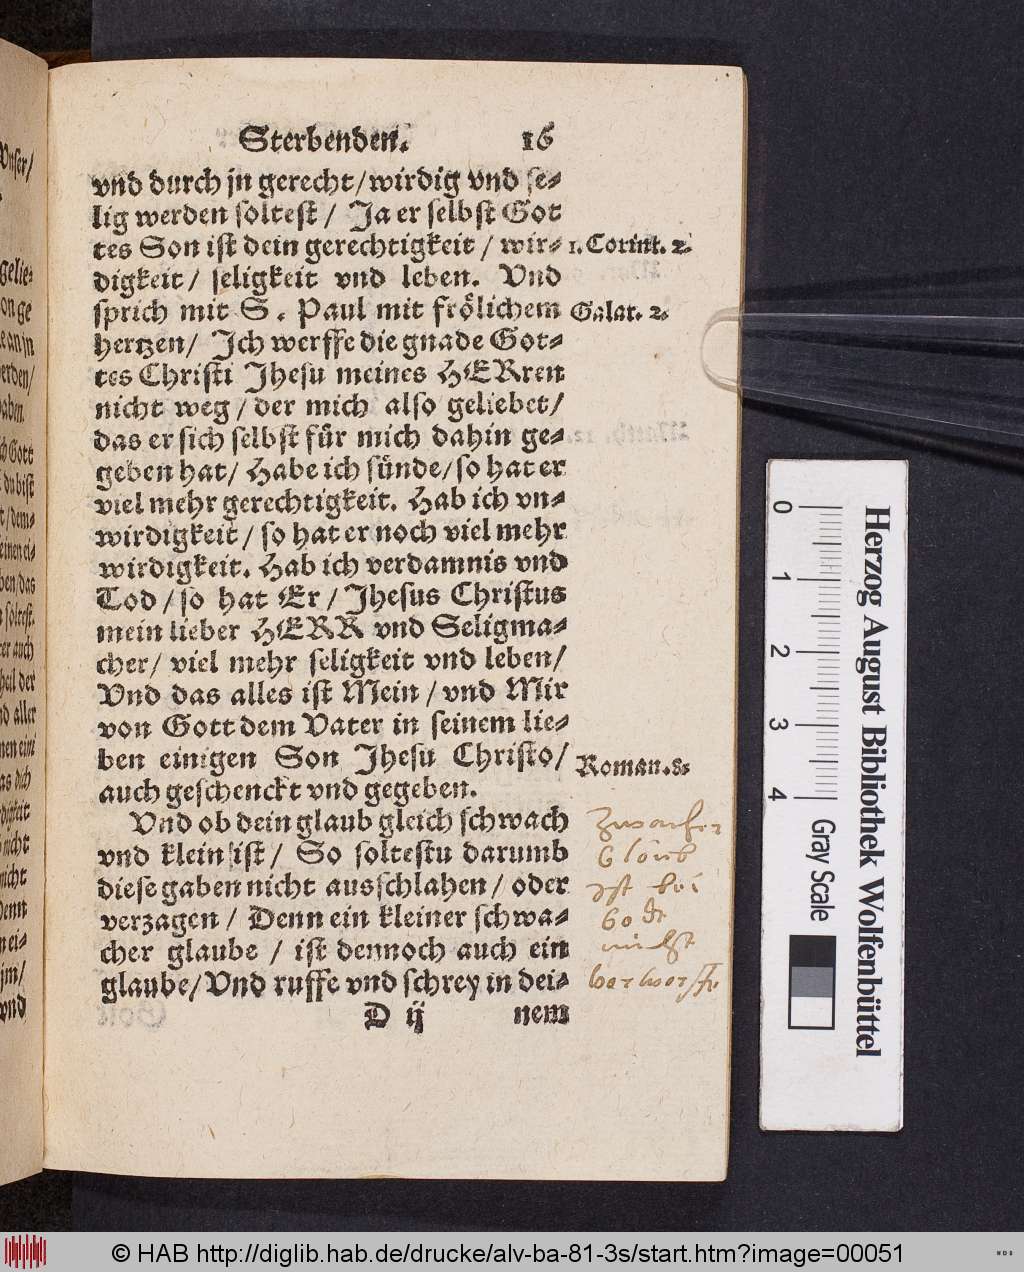 Sterbenden. 16
vnd durch jn gerecht/wirdig vnd se-
lig werden soltest / Ja er selbst Got
tes Son ist dein gerechtigkeit / wir- 1. Corint. 2.
digkeit/ seligkeit vnd leben. Vnd
sprich mit S. Paul mit frölichem Galat. 2.
hertzen/ Ich werffe die gnade Got-
tes Christi Jhesu meines HERren
nicht weg / der mich also geliebet/
das er sich selbst für mich dahin ge-
geben hat/ Habe ich sünde/so hat er
viel mehr gerechtigkeit. Hab ich vn-
wirdigkeit / so hat er noch viel mehr
wirdigkeit. Hab ich verdamnis vnd
Tod / so hat Er / Jhesus Christus
mein lieber HERR vnd Seligma-
cher/ viel mehr seligkeit vnd leben/
Vnd das alles ist Mein / vnd Mir
von Gott dem Vater in seinem lie-
ben einigen Son Jhesu Christo/ Roman. 8.
auch geschenckt vnd gegeben.
Vnd ob dein glaub gleich schwach
vnd klein ist / So soltestu darumb
diese gaben nicht ausschlahen / oder
verzagen / Denn ein kleiner schwa-
cher glaube / ist dennoch auch ein
glaube/ Vnd ruffe vnd schrey in dei-
D ij nem
0 1 2 3 4
Gray Scale
Herzog August Bibliothek Wolfenbüttel
© HAB http://diglib.hab.de/drucke/alv-ba-81-3s/start.htm?image=00051